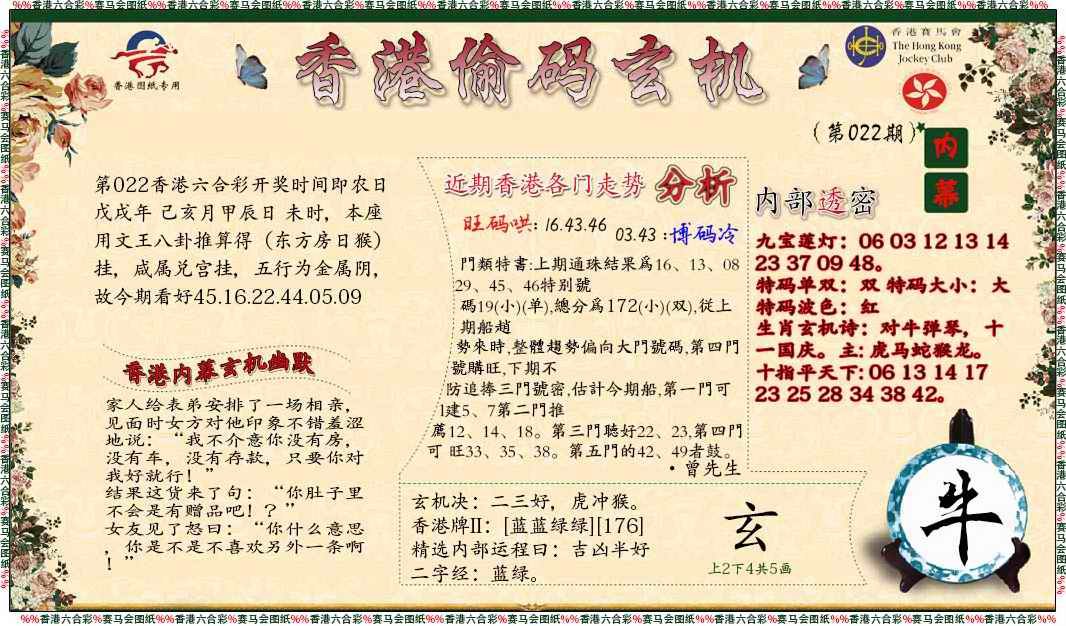 %%香港六合彩%赛马会图纸%%香港六合彩%赛马会图纸%%香港六合彩%赛马会图纸%%香港六合彩%赛马会图纸%%香港六合彩%赛马会图纸%%香港六合彩%赛马会图纸%%香港六合彩%%
香港图纸专用
香港偷码玄机
香港賽馬會
The Hong Kong
Jockey Club
(第022期)
内
幕
第022香港六合彩开奖时间即农日
戊戌年 己亥月甲辰日 未时，本座
用文王八卦推算得（东方房日猴）
挂，戚属兑宫挂，五行为金属阴，
故今期看好45.16.22.44.05.09
香港内幕玄机幽默
家人给表弟安排了一场相亲，
见面时女方对他印象不错羞涩
地说：“我不介意你没有房，
没有车，没有存款，只要你对
我好就行！”
结果这货来了句：“你肚子里
不会是有赠品吧！？”
女友见了怒曰：“你什么意思
，你是不是不喜欢另外一条啊
！”
近期香港各门走势 分析
旺码哄: 16.43.46
03.43 :博码冷
門類特書:上期通珠結果爲16、13、08
29、45、46特别號
碼19(小)(单),總分爲172(小)(双),從上
期船趙
勢來時,整體趨勢偏向大門號碼,第四門
號購旺,下期不
防追捧三門號密,估计今期船,第一門可
1建5、7第二門推
薦12、14、18。第三門聴好22、23,第四門
可 旺33、35、38。第五門的42、49者鼓。
·曾先生
内部透密
九宝莲灯：06 03 12 13 14
23 37 09 48。
特码单双：双 特码大小：大
特码波色：红
生肖玄机诗：对牛弹琴，十
一国庆。主: 虎马蛇猴龙。
十指平天下: 06 13 14 17
23 25 28 34 38 42。
玄机决：二三好，虎冲猴。
香港牌II：[蓝蓝绿绿][176]
精选内部运程曰：吉凶半好
二字经：蓝绿。
玄
上2下4共5画
牛
%%香港六合彩%赛马会图纸%%香港六合彩%赛马会图纸%%香港六合彩%赛马会图纸%%香港六合彩%赛马会图纸%%香港六合彩%赛马会图纸%%香港六合彩%赛马会图纸%%香港六合彩%%